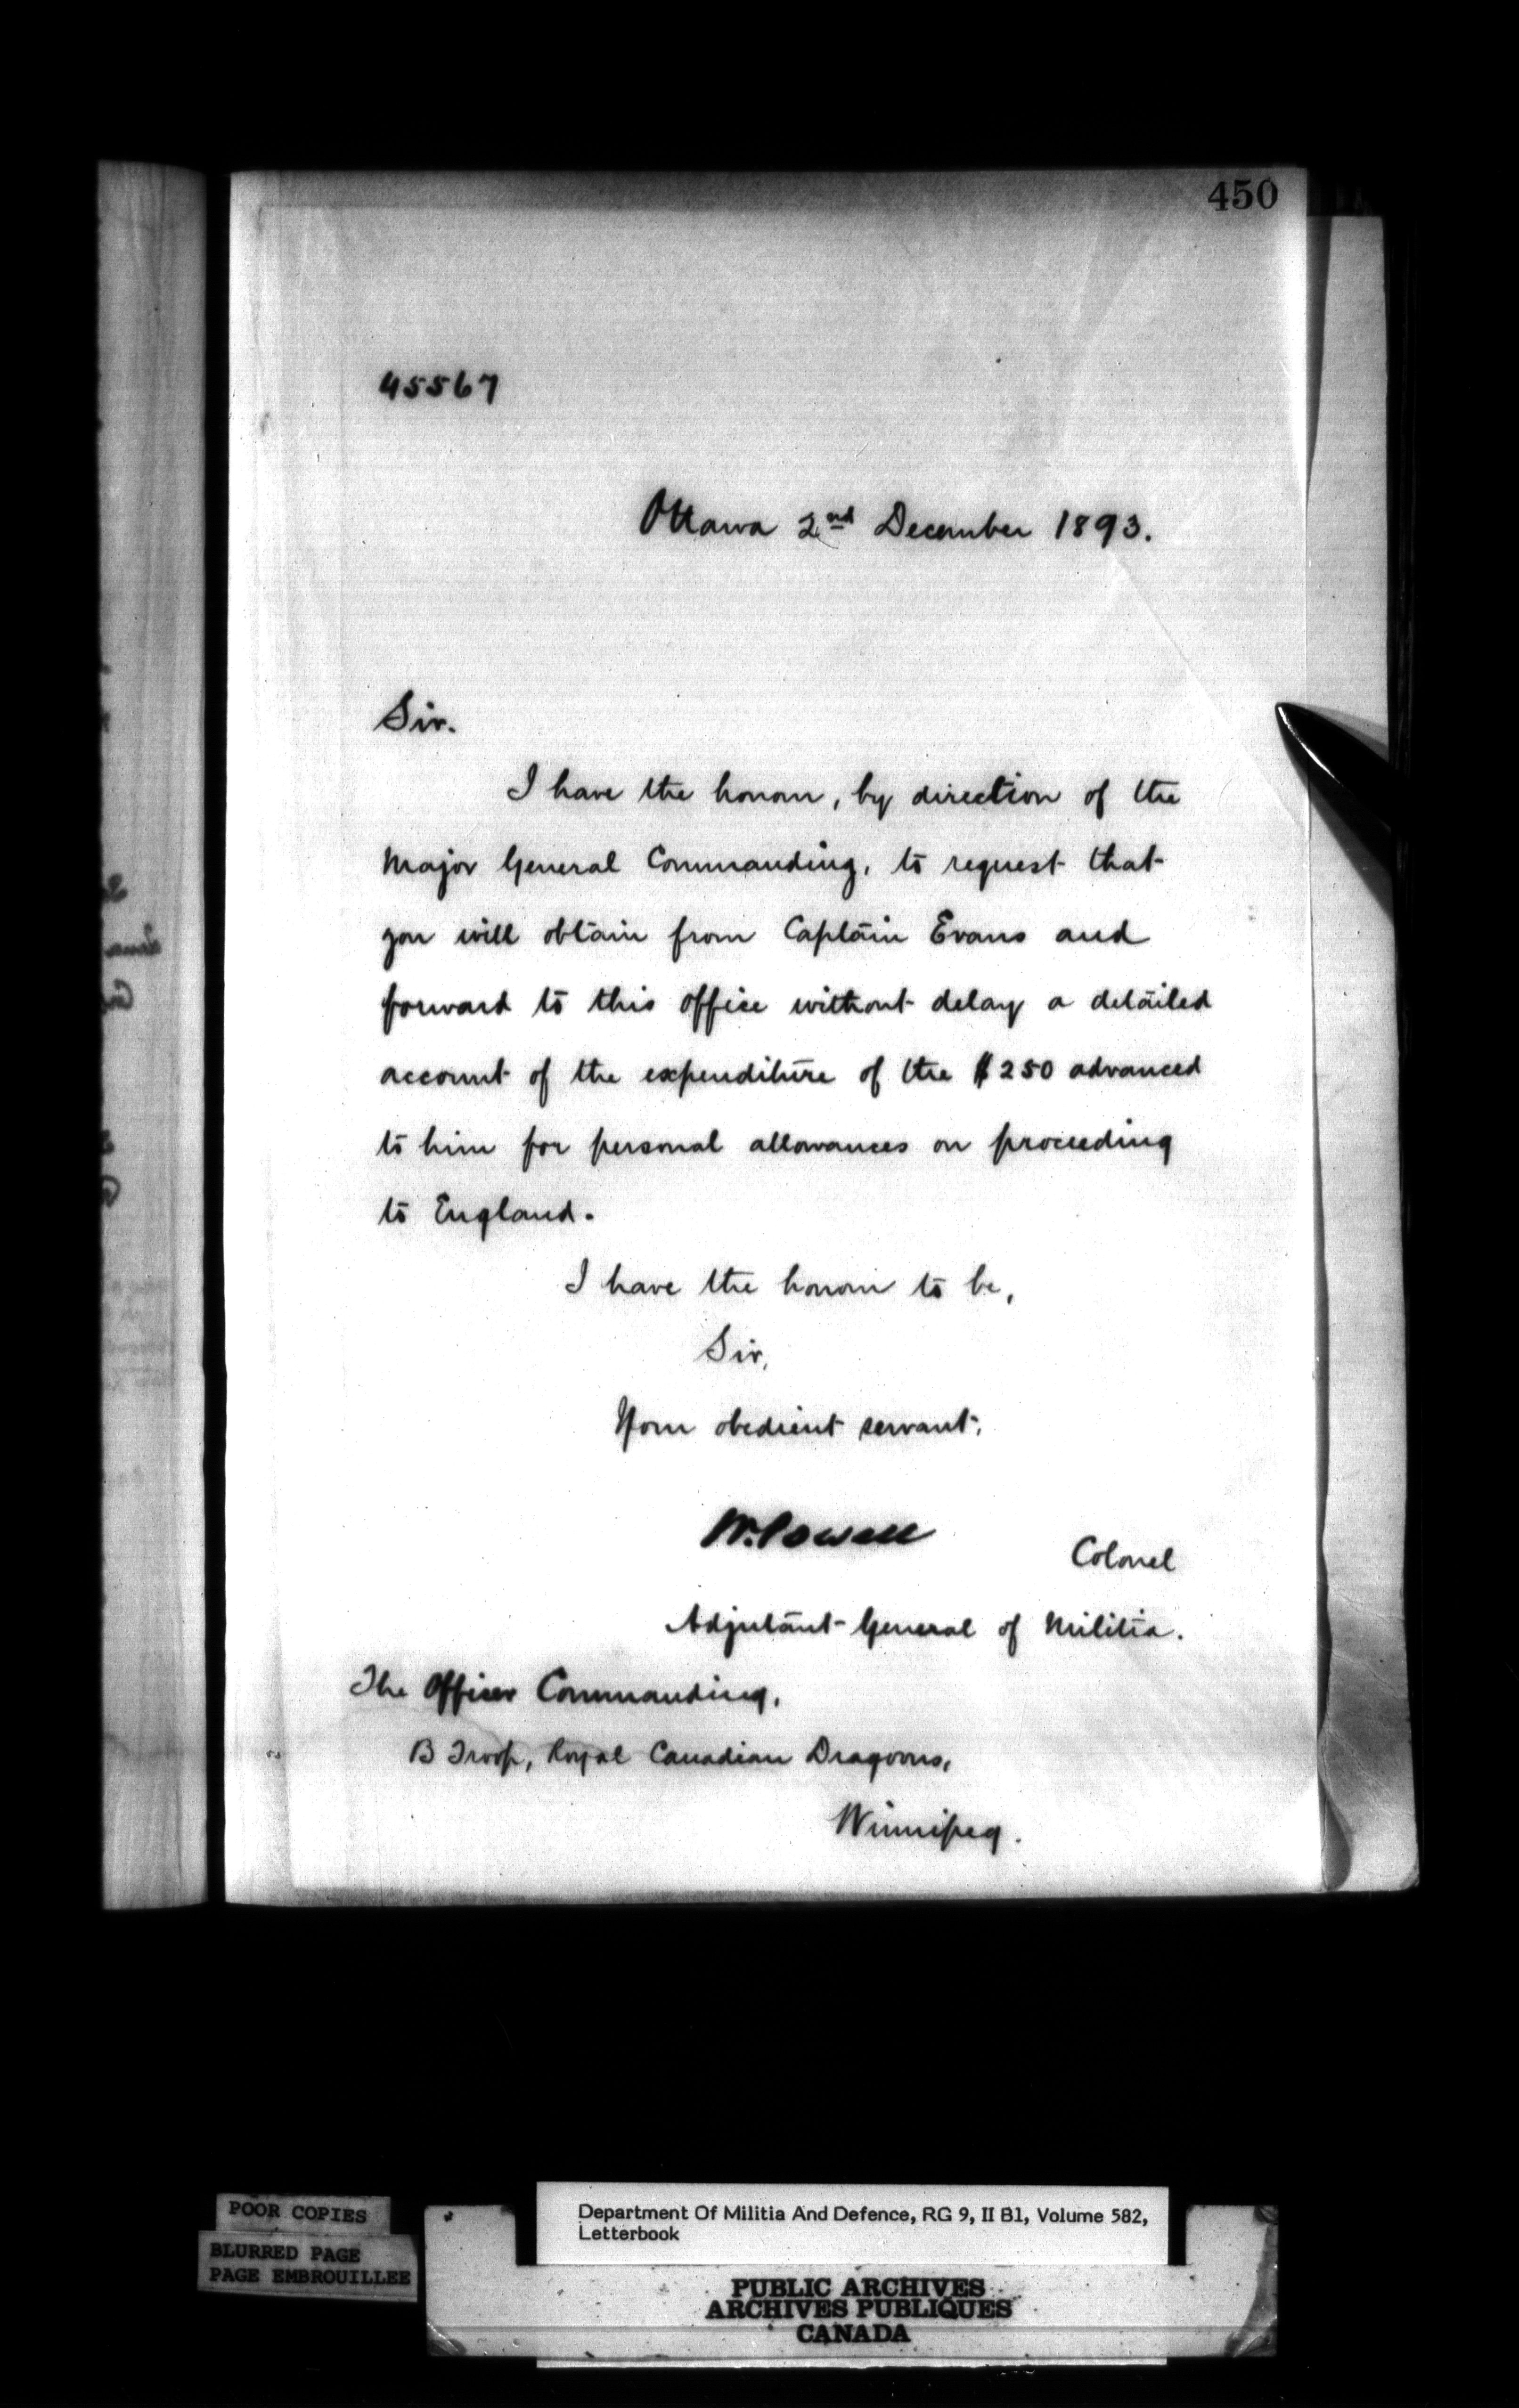 450
45567
Ottawa 2nd December 1893.
Sir.
I have the honour, by direction of the
Major General Commanding, to request that
you will obtain from Captain Evans and
forward to this office without delay a detailed
account of the expenditure of the $250 advanced
to him for personal allowances on proceeding
to England.
I have the honour to be,
Sir,
Your obedient servant,
W. Powell
Colonel
Adjutant-General of Militia.
The Officer Commanding,
B Troop, Royal Canadian Dragoons,
Winnipeg.
POOR COPIES
BLURRED PAGE
PAGE EMBROUILLEE
Department Of Militia And Defence, RG 9, II B1, Volume 582,
Letterbook
PUBLIC ARCHIVES
ARCHIVES PUBLIQUES
CANADA